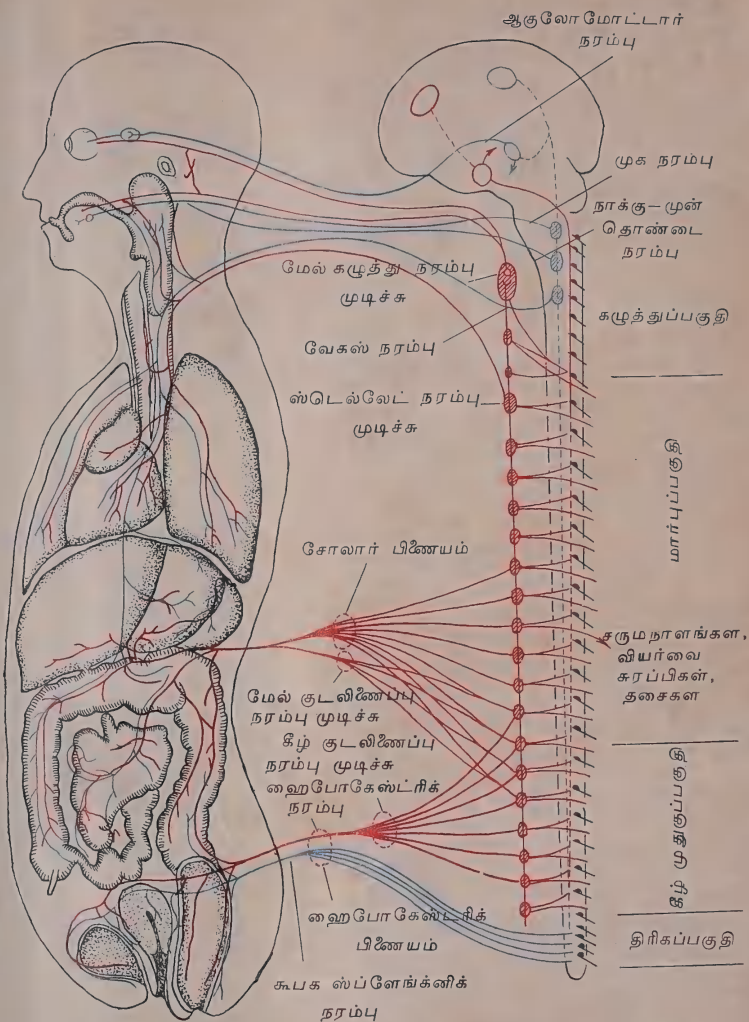 ஆகுலோமோட்டார்
நரம்பு
முக நரம்பு
நாக்கு-முன்
தொண்டை
நரம்பு
மேல் கழுத்து நரம்பு
முடிச்சு
கழுத்துப்பகுதி
வேகஸ் நரம்பு
ஸ்டெல்லேட் நரம்பு
முடிச்சு
மார்புப்பகுதி
சோலார் பிணையம்
சருமநாளங்கள,
வியர்வை
சுரப்பிகள்,
தசைகள
மேல் குடலிணைப்பு
நரம்பு முடிச்சு
கீழ் குடலிணைப்பு
நரம்பு முடிச்சு
ஹைபோகேஸ்ட்ரிக்
நரம்பு
கீழ் முதுகுப்பகுதி
ஹைபோகேஸ்ட்ரிக்
பிணையம்
திரிகப்பகுதி
கூபக ஸ்ப்ளேங்க்னிக்
நரம்பு